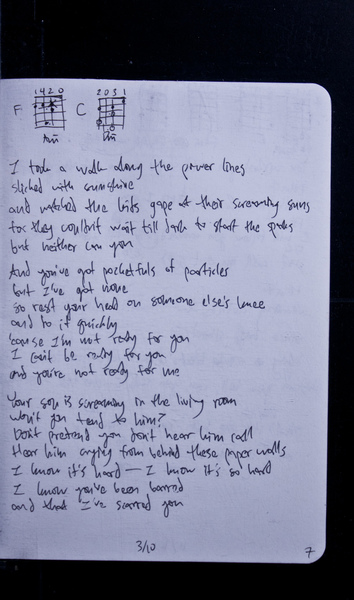 1 4 2 0
2 0 3 1
F
C
I took a walk along the power lines
slicked with sunshine
and watched the kids gape at their screaming suns
for they couldn't wait till dark to start the
but neither can you
And you've got pocketfuls of particles
but I've got none
so rest your head on someone else's knee
and do it quickly
'cause I'm not ready for you
I can't be ready for you
and you're not ready for me
Your son is screaming in the living room
won't you tend to him?
Don't pretend you don't hear him call
Hear him crying from behind these paper walls
I know it's hard — I know it's so hard
I know you've been
and that I've scarred you
3/10
7